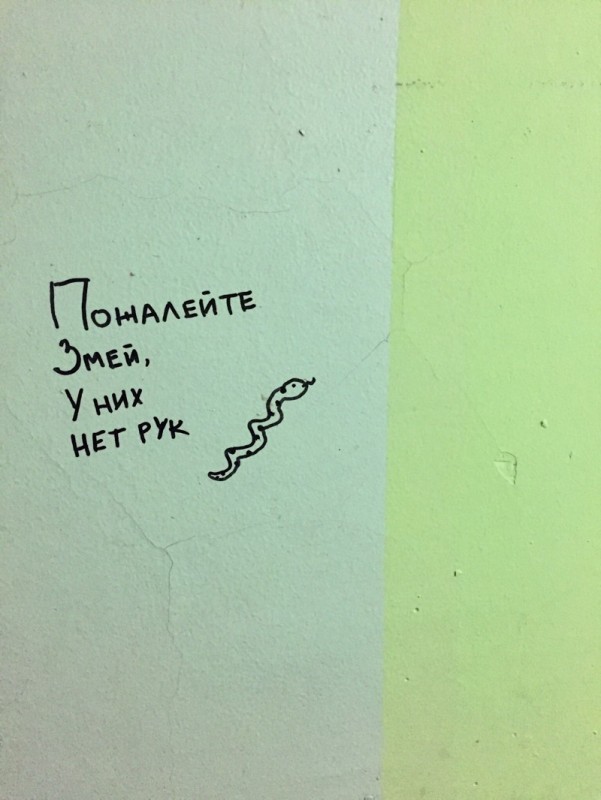 Пожалейте
Змей,
у них
нет рук